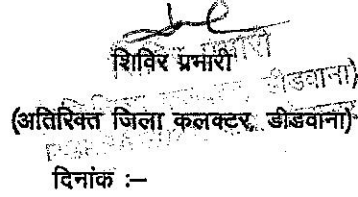 शिविर प्रभारी
(अतिरिक्त जिला कलक्टर, डीडवाना)
दिनांक :–